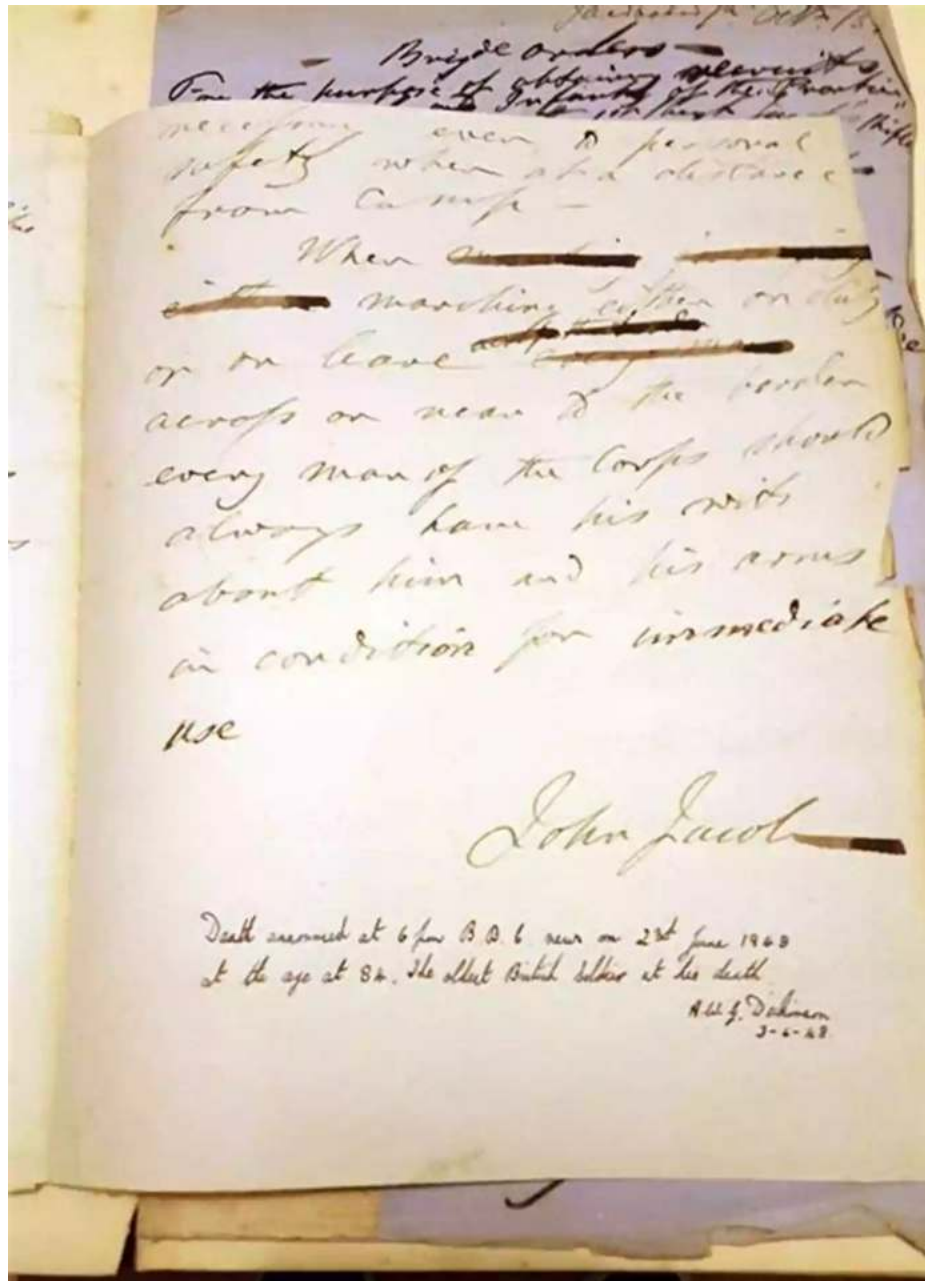 Brigde orders
For the purpose of obtaining recruits
Infantry of the Frontier
necessary even to personal
safety when at a distance
from Camp –
When
marching either on duty
or on leave
across or near to the border
every man of the Corps should
always have his wits
about him and his arms
in condition for immediate
use
John Jacob
Death announced at 6 pm B.B.C news on 2nd June 1948
at the age at 84. The oldest British Soldier at his death
A.W.J. Dickinson
3-6-48